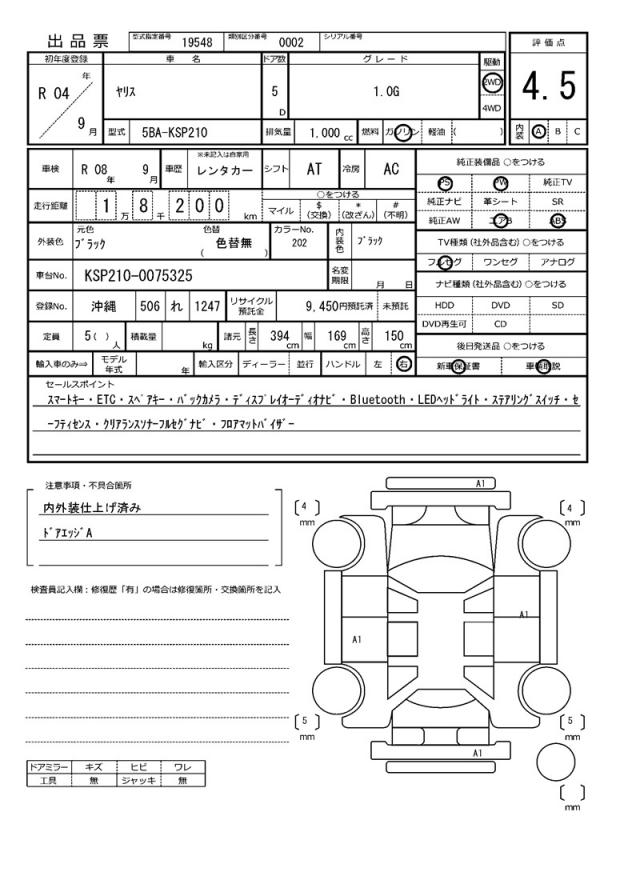 出品票
型式指定番号 19548 類別区分番号 0002 シリアル番号
評価点
4.5
内装 A B C
初年度登録 車名 ドア数 グレード 駆動
R 04 年 9 月
ヤリス 5 D 1.0G 2WD 4WD
型式 5BA-KSP210 排気量 1.000 cc 燃料 ガソリン 軽油 ( )
車検 R 08 年 9 月 車歴 ※未記入は自家用 レンタカー シフト AT 冷房 AC
走行距離 1 万 8 千 2 0 0 km
○をつける
マイル $ (交換) * (改ざん) # (不明)
外装色 元色 ブラック 色替 色替無 ( ) カラーNo. 202 内装色 ブラック
車台No. KSP210-0075325 名変期限 月 日
登録No. 沖縄 506 れ 1247 リサイクル預託金 9,450円預託済 未預託
定員 5( ) 人 積載量 kg 諸元 長さ 394 cm 幅 169 cm 高さ 150 cm
輸入車のみ⇒ モデル年式 年 輸入区分 ディーラー ・ 並行 ハンドル 左 ・ 右
純正装備品 ○をつける
PS PW 純正TV
純正ナビ 革シート SR
純正AW エアB ABS
TV種類 (社外品含む) ○をつける
フルセグ ワンセグ アナログ
ナビ種類 (社外品含む) ○をつける
HDD DVD SD
DVD再生可 CD
後日発送品 ○をつける
新車保証書 車輌取説
セールスポイント
スマートキー・ETC・スペアキー・バックカメラ・ディスプレイオーディオナビ・Bluetooth・LEDヘッドライト・ステアリングスイッチ・セ
ーフティセンス・クリアランスソナーフルセグナビ・フロアマットバイザー
注意事項・不具合箇所
内外装仕上げ済み
ドアエッジA
検査員記入欄：修復歴「有」の場合は修復箇所・交換箇所を記入
ドアミラー キズ ヒビ ワレ
工具 無 ジャッキ 無
A1
4 mm
4 mm
A1
A1
5 mm
5 mm
A1
mm